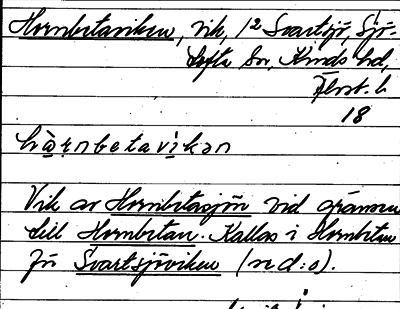 Hornbetaviken, vik, 12 Svartsjö, Sjö-
tofta sn, Kinds hd,
Älvsb. l.
18
hòrnbetavikən
Vik av Hornbetasjön vid gränsen
till Hornbetan. Kallas i Hornbetan
för Svartsjöviken (se d:o).